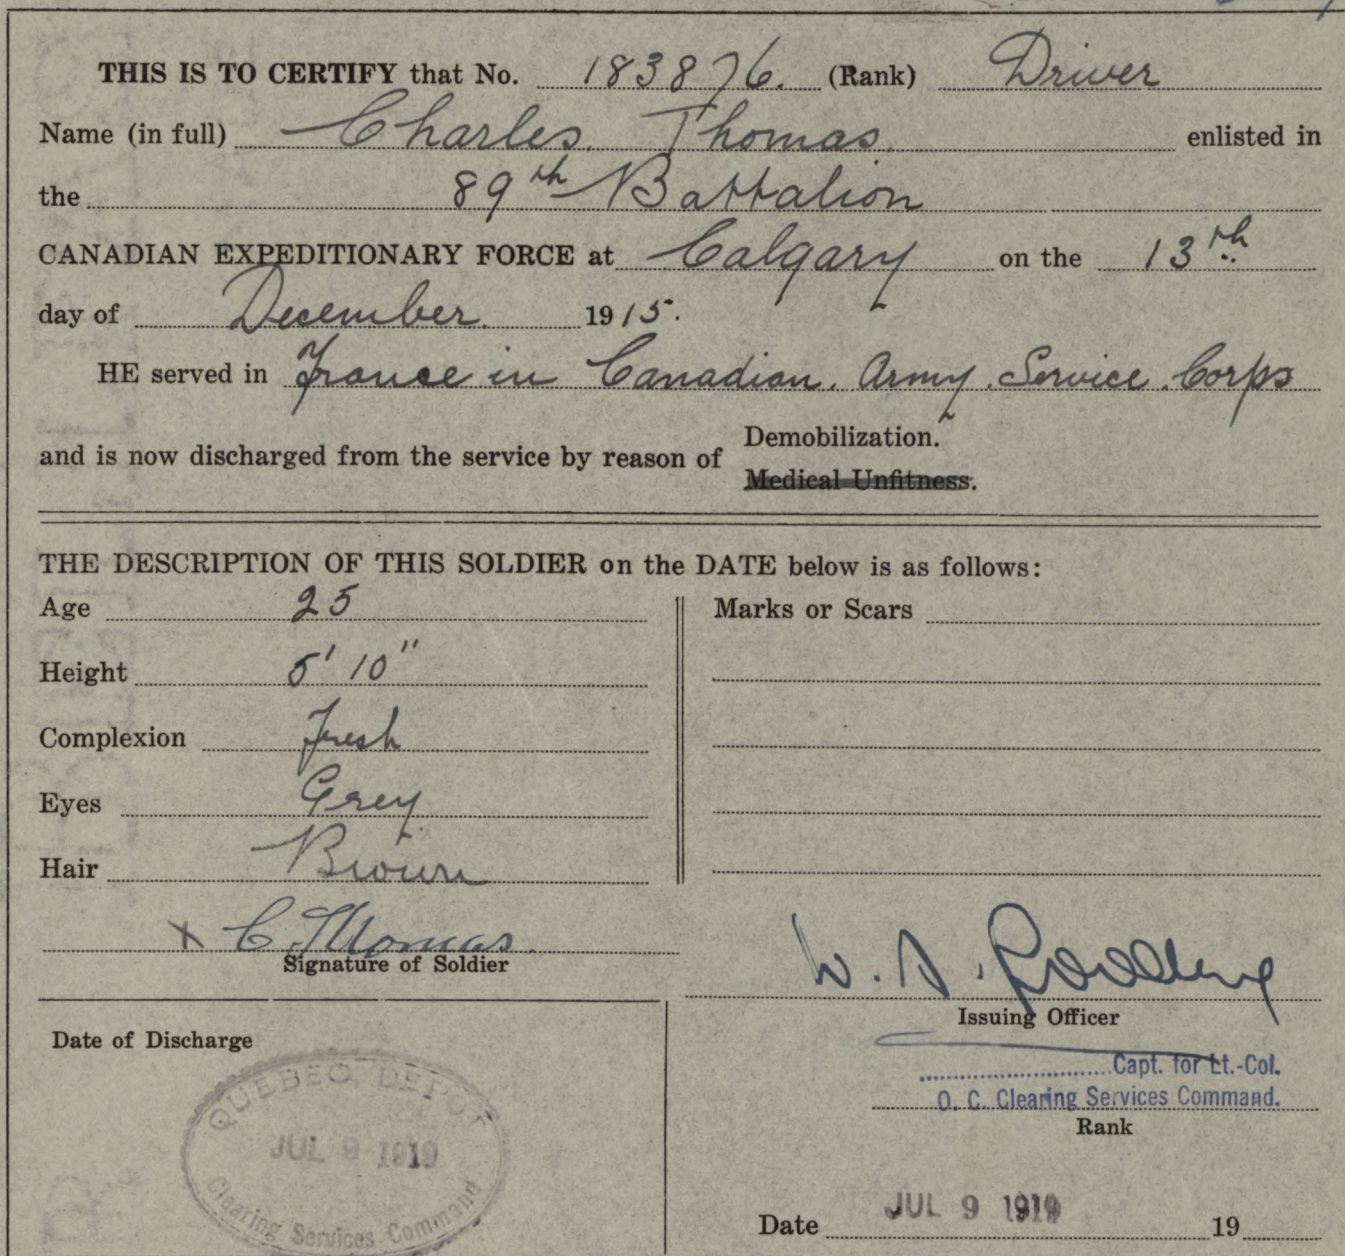 THIS IS TO CERTIFY that No. 183876. (Rank) Driver
Name (in full) Charles Thomas. enlisted in
the 89th Battalion
CANADIAN EXPEDITIONARY FORCE at Calgary on the 13th
day of December 1915.
HE served in France in Canadian Army Service Corps
and is now discharged from the service by reason of Demobilization.
Medical Unfitness.
THE DESCRIPTION OF THIS SOLDIER on the DATE below is as follows:
Age 25
Marks or Scars
Height 5' 10"
Complexion Fresh
Eyes Grey
Hair Brown
x C Thomas.
Signature of Soldier
W. A.
Issuing Officer
Capt. for Lt.-Col.
O. C. Clearing Services Command.
Rank
Date of Discharge
QUEBEC DEPOT
JUL 9 1919
Clearing Services Command
Date JUL 9 1919 19